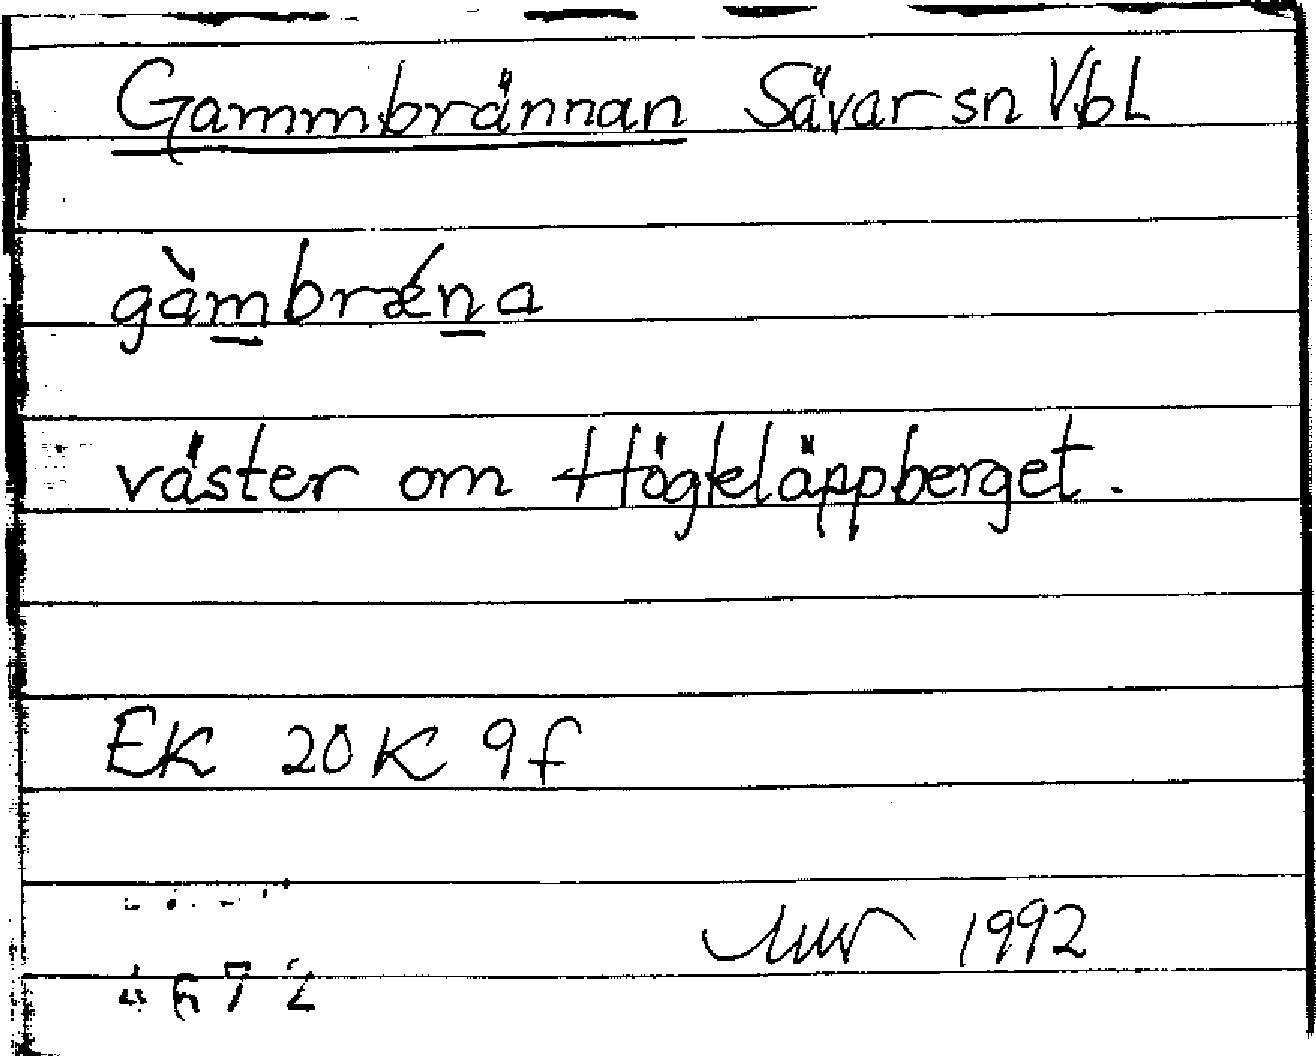 Gammbrännan Sävar sn Vbl
gàmbrǽna
väster om Högkläppberget.
EK 20K 9f
1992